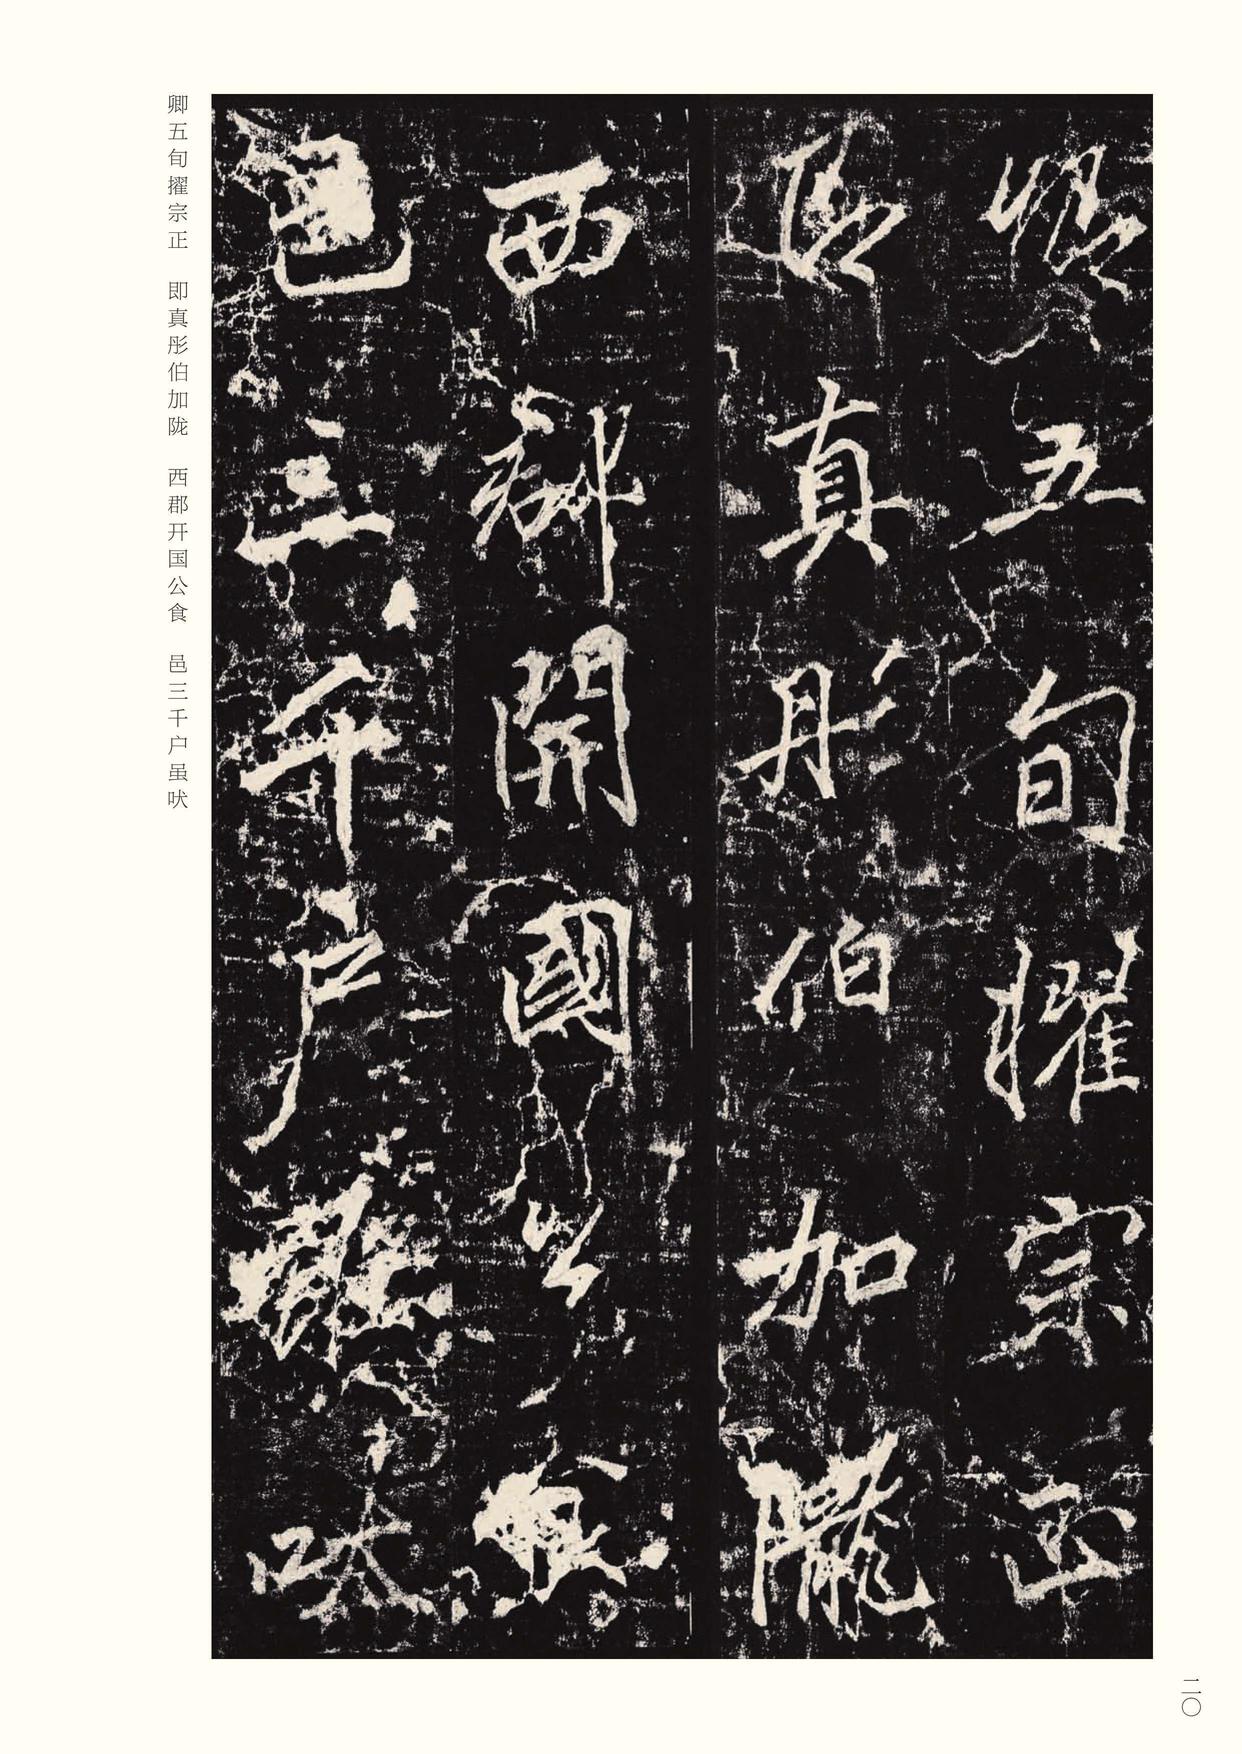 卿五旬擢宗正
即真彤伯加隴
西郡開國公食
邑三千户雖吠
卿五旬擢宗正　即真彤伯加陇　西郡开国公食　邑三千户虽吠
二〇